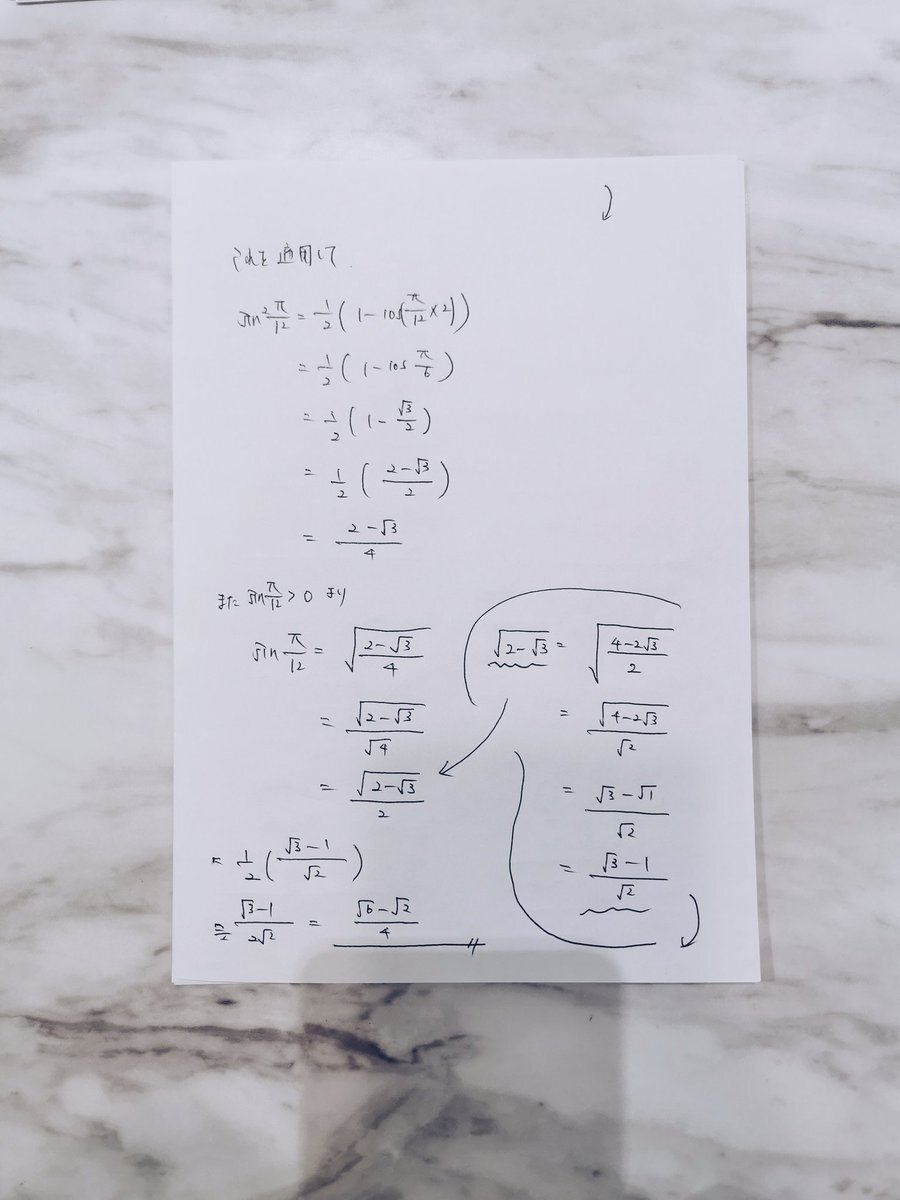 これを適用して
sin²π/12 = 1/2 ( 1 - cos(π/12 × 2) )
= 1/2 ( 1 - cos π/6 )
= 1/2 ( 1 - √3/2 )
= 1/2 ( (2-√3)/2 )
= (2-√3)/4
また sin π/12 > 0 より
sin π/12 = √((2-√3)/4)
= √(2-√3)/√4
= √(2-√3)/2
= 1/2 ( (√3-1)/√2 )
= (√3-1)/2√2 = (√6-√2)/4
√(2-√3) = √((4-2√3)/2)
= √(4-2√3)/√2
= (√3-√1)/√2
= (√3-1)/√2